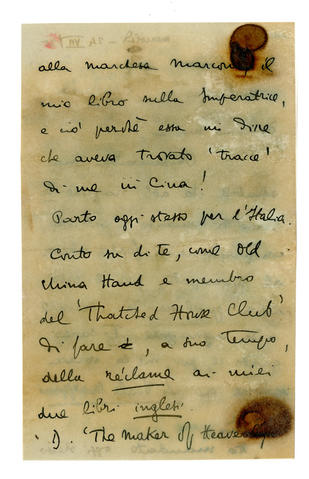 alla marchesa Marconi, il
mio libro sulla Imperatrice,
e ciò perchè essa mi disse
che aveva trovato 'tracce'
di me in Cina!
Parto oggi stesso per l'Italia.
Conto su di te, come Old
China Hand e membro
del 'Thatched House Club'
di fare, a suo tempo,
della réclame ai miei
due libri inglesi.
1). 'The Maker of Heavenly